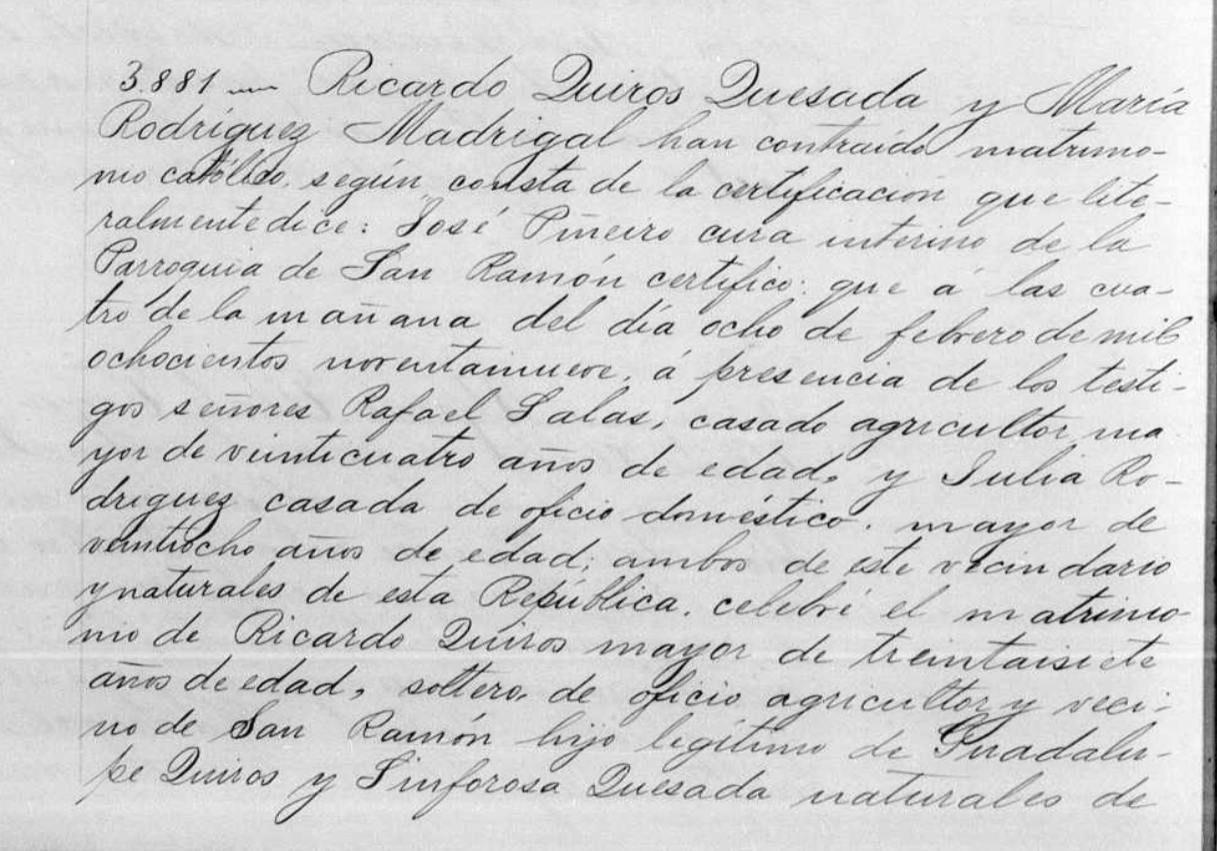 3.881 — Ricardo Quiros Quesada y María
Rodríguez Madrigal han contraído matrimo-
nio católico, según consta de la certificación que lite-
ralmente dice: José Piñeiro cura interino de la
Parroquia de San Ramón certifico: que á las cua-
tro de la mañana del día ocho de febrero de mil
ochocientos noventainueve, á presencia de los testi-
gos señores Rafael Salas, casado agricultor, ma
yor de veinticuatro años de edad, y Julia Ro-
dríguez casada de oficio doméstico, mayor de
veintiocho años de edad; ambos de este vecindario
y naturales de esta República, celebré el matrimo-
nio de Ricardo Quiros mayor de treintaisiete
años de edad, soltero, de oficio agricultor y veci-
no de San Ramón hijo legítimo de Guadalu-
pe Quiros y Sinforosa Quesada naturales de